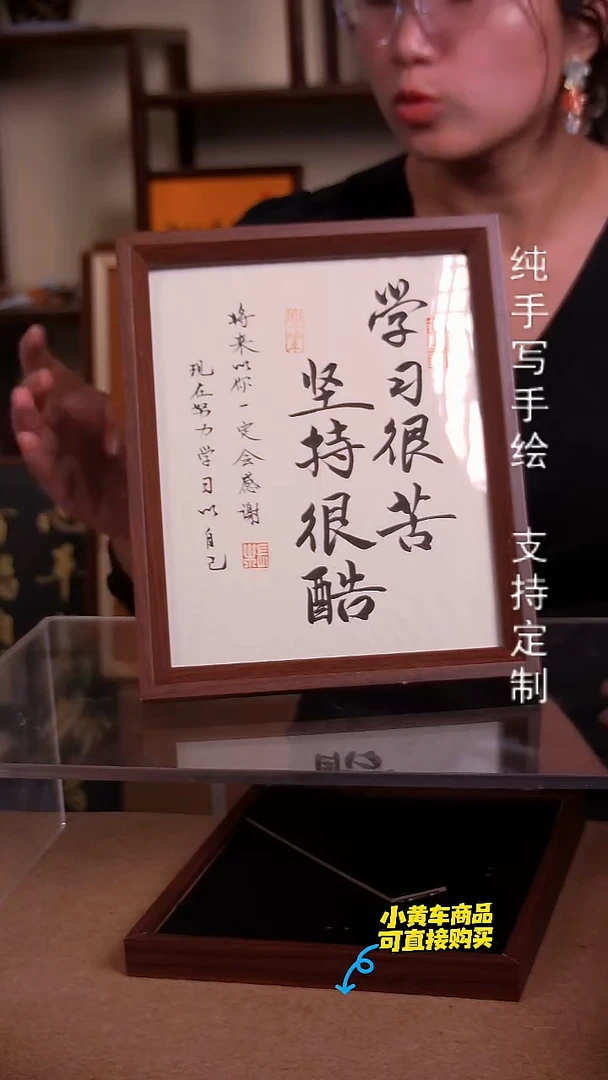 纯手写手绘 支持定制
学习很苦
坚持很酷
将来的你一定会感谢
现在努力学习的自己
小黄车商品
可直接购买